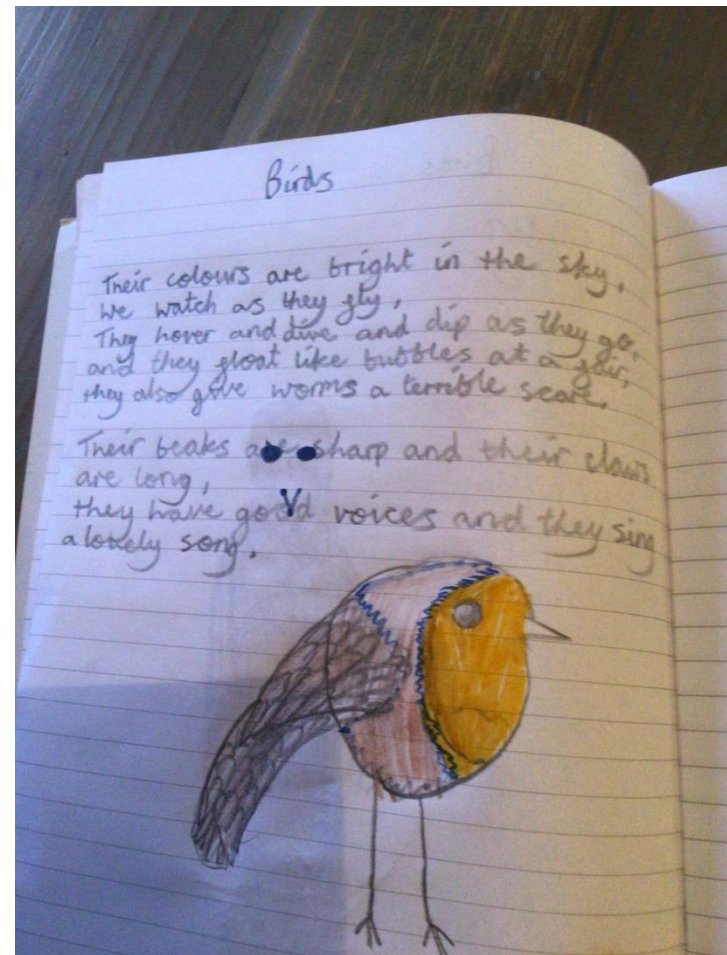 Birds
Their colours are bright in the sky,
we watch as they fly,
They hover and dive and dip as they go,
and they float like bubbles at a fair,
they also give worms a terrible scare.
Their beaks are sharp and their claws
are long,
they have good voices and they sing
a lovely song.